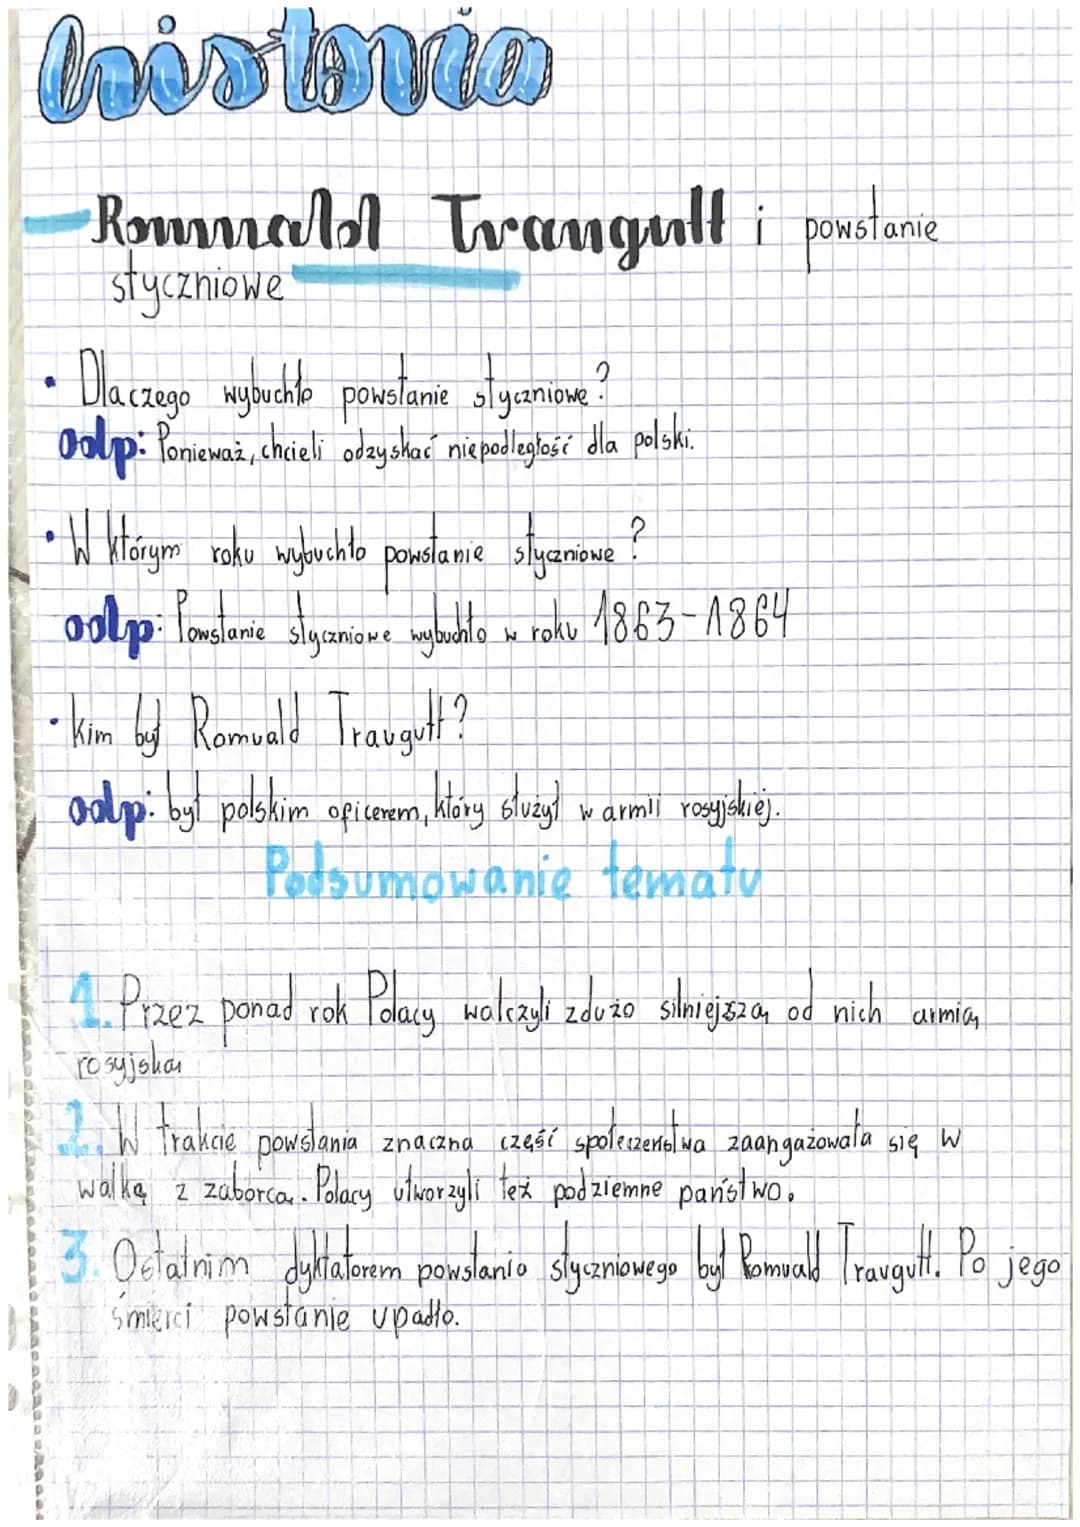 historia
Romuald Traugutt i powstanie
styczniowe
• Dlaczego wybuchło powstanie styczniowe?
odp: Ponieważ, chcieli odzyskać niepodległość dla polski.
• W którym roku wybuchło powstanie styczniowe?
odp: Powstanie styczniowe wybuchło w roku 1863-1864
• kim był Romuald Traugutt?
odp: był polskim oficerem, który służył w armii rosyjskiej.
Podsumowanie tematu
1. Przez ponad rok Polacy walczyli z dużo silniejszą od nich armią
rosyjską
2. W trakcie powstania znaczna część społeczeństwa zaangażowała się w
walkę z zaborcą. Polacy utworzyli też podziemne państwo.
3. Ostatnim dyktatorem powstania styczniowego był Romuald Traugutt. Po jego
śmierci powstanie upadło.